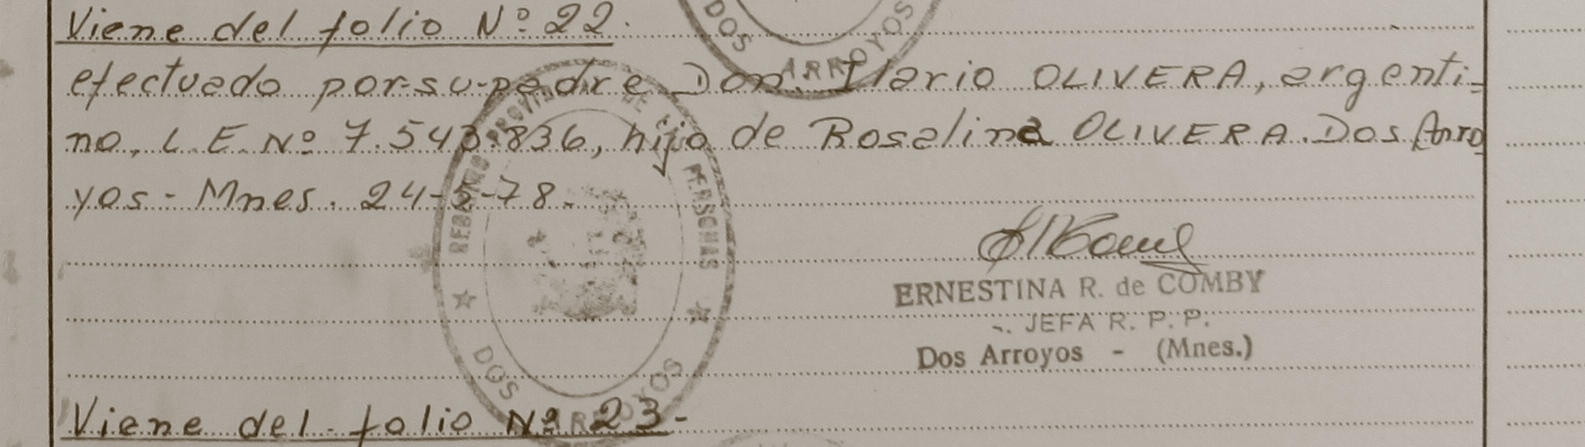 Viene del folio Nº 22.
DOS ARROYOS
efectuado por su padre Don. Ilario OLIVERA, argenti-
no, L.E. Nº 7.543.836, hijo de Rosalina OLIVERA. Dos Arro
yos - Mnes. 24-5-78.
PERSONAS
DOS ARROYOS
ERNESTINA R. de COMBY
JEFA R. P. P.
Dos Arroyos - (Mnes.)
Viene del folio Nº 23-